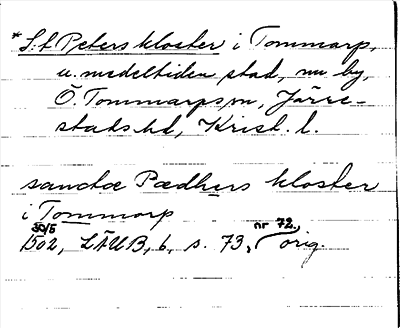 *S:t Peters kloster i Tommarp,
u. medeltiden stad, nu by,
Ö. Tommarps sn, Järre-
stads hd, Krist. l.
sanctæ Pædhers kloster
i Tommorp
30/5 nr 72,
1502, LÄUB, 6, s. 73, orig.